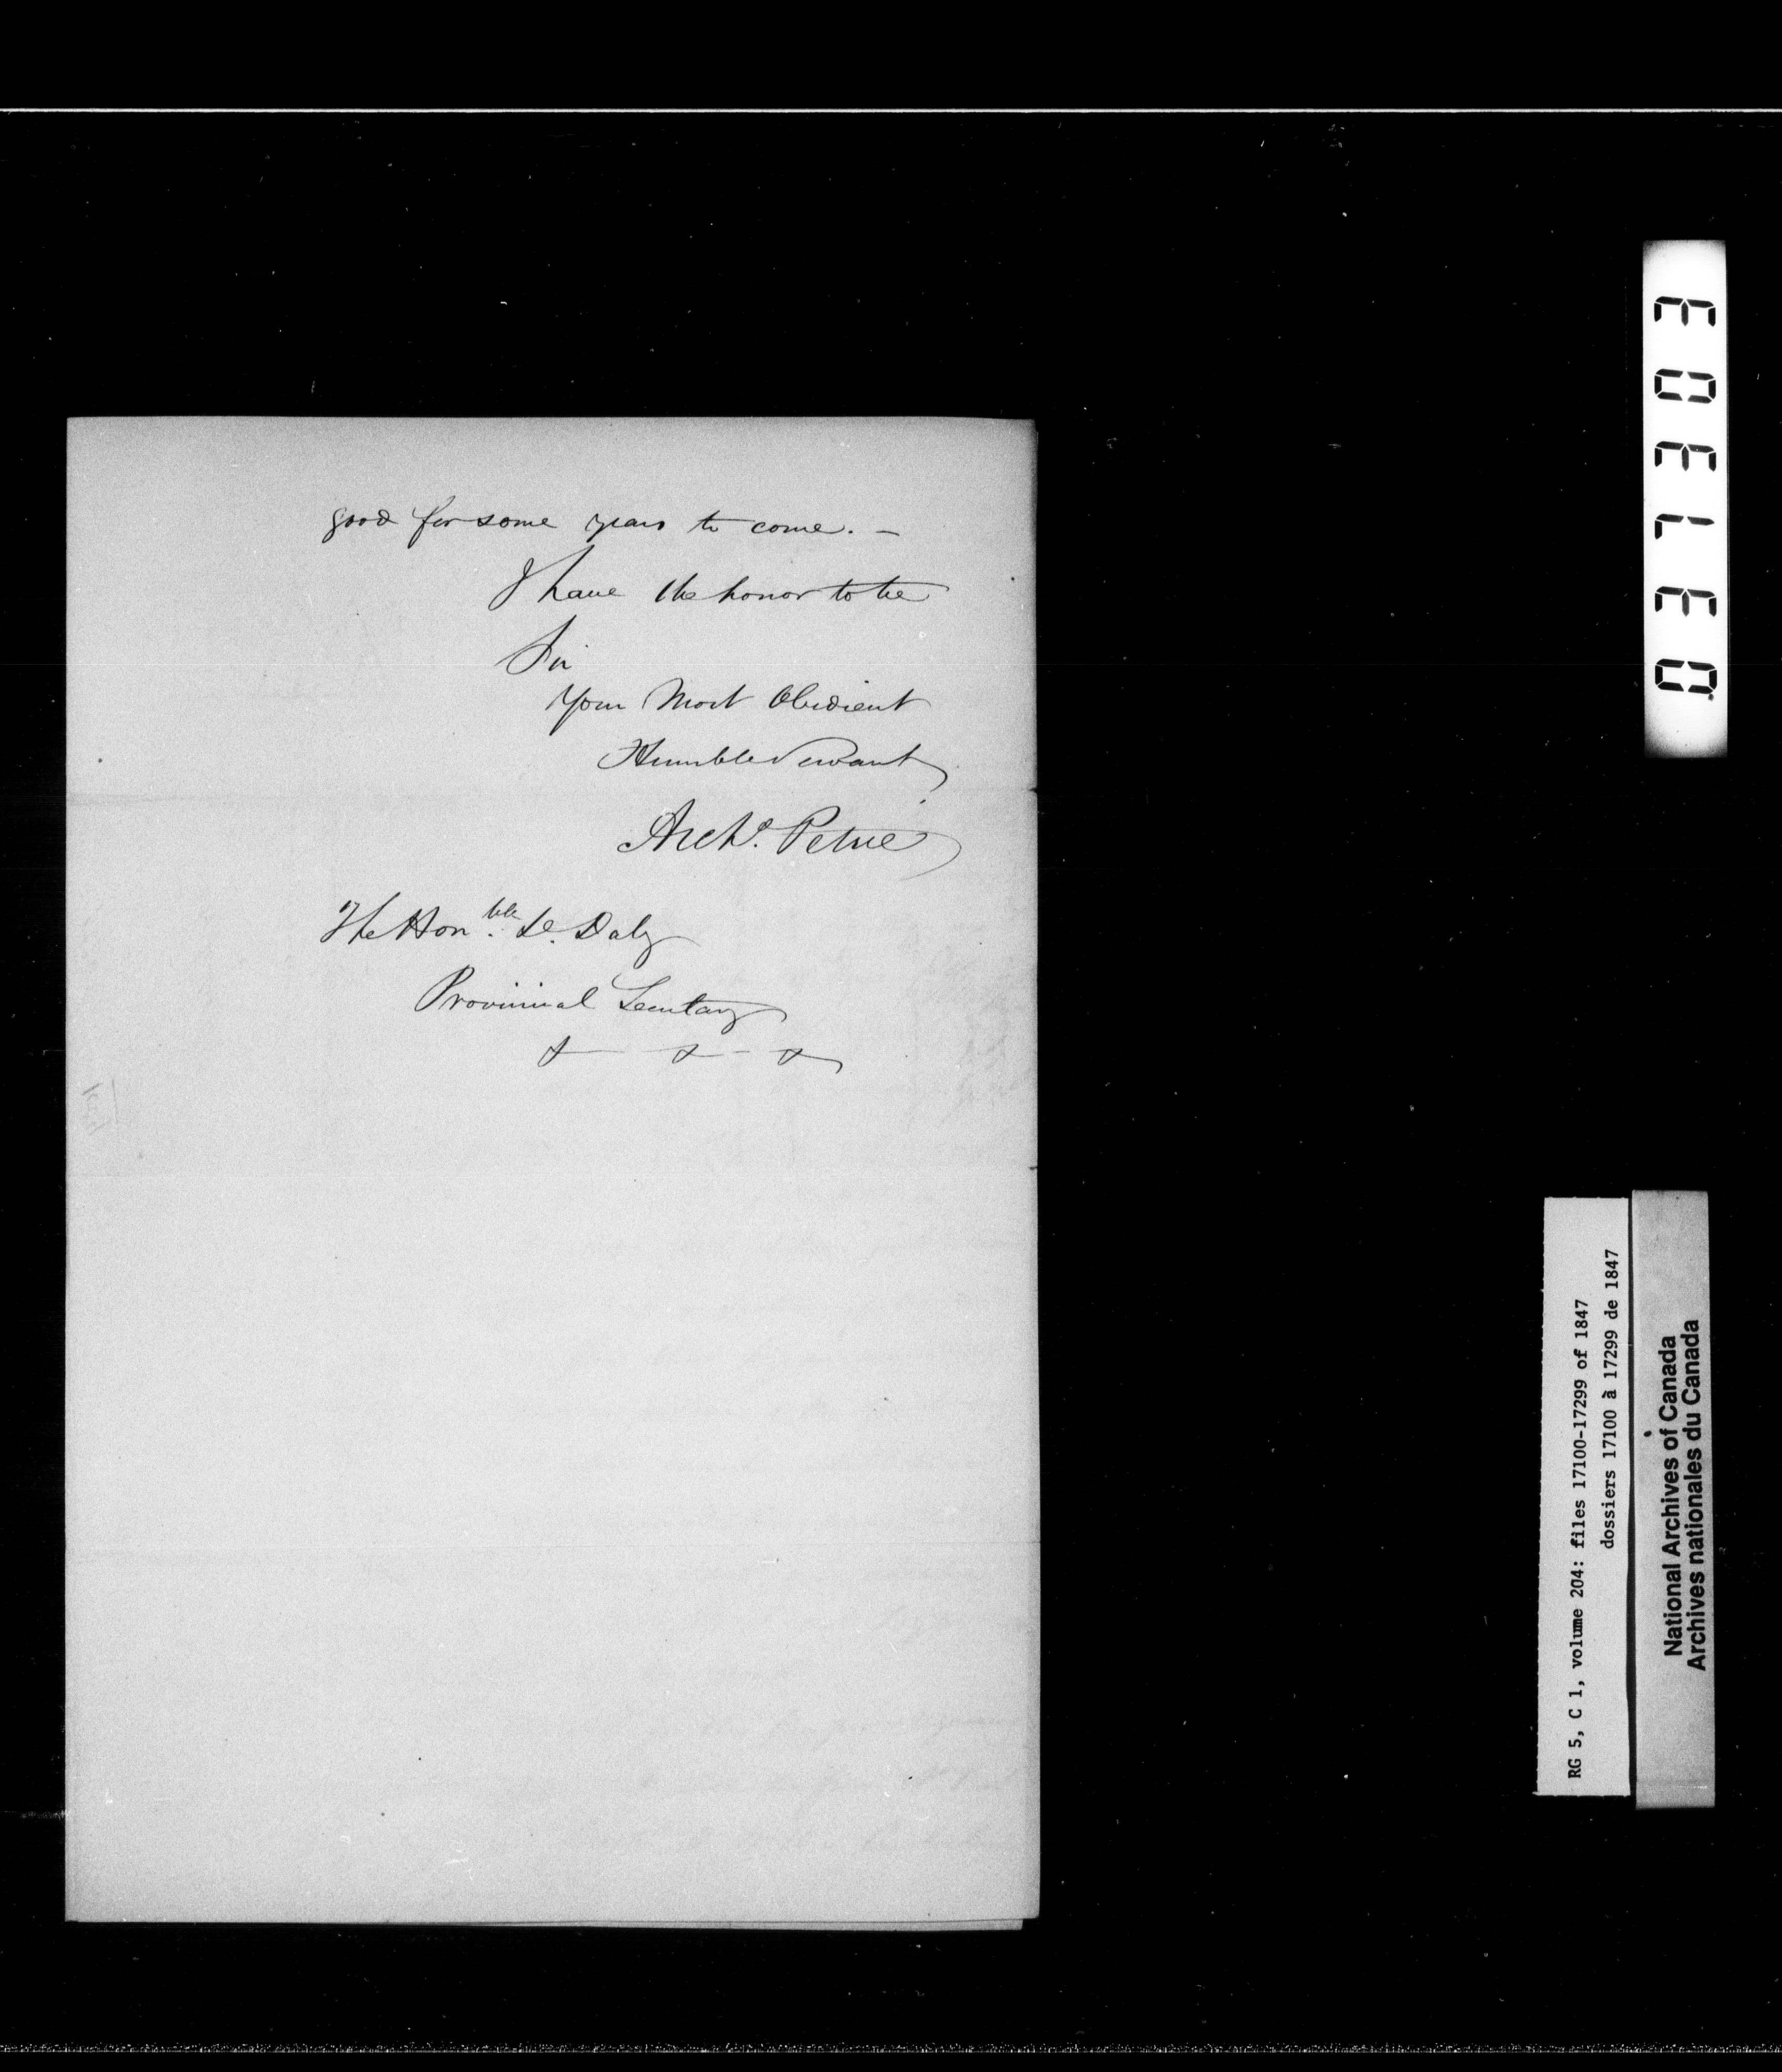 good for some years to come. –
I have the honor to be
Sir
Your Most Obedient
Humble Servant
Archd. Petrie
The Honble. D. Daly
Provincial Secretary
+ + - +
E0E1E0
RG 5, C 1, volume 204: files 17100-17299 of 1847
dossiers 17100 à 17299 de 1847
National Archives of Canada
Archives nationales du Canada